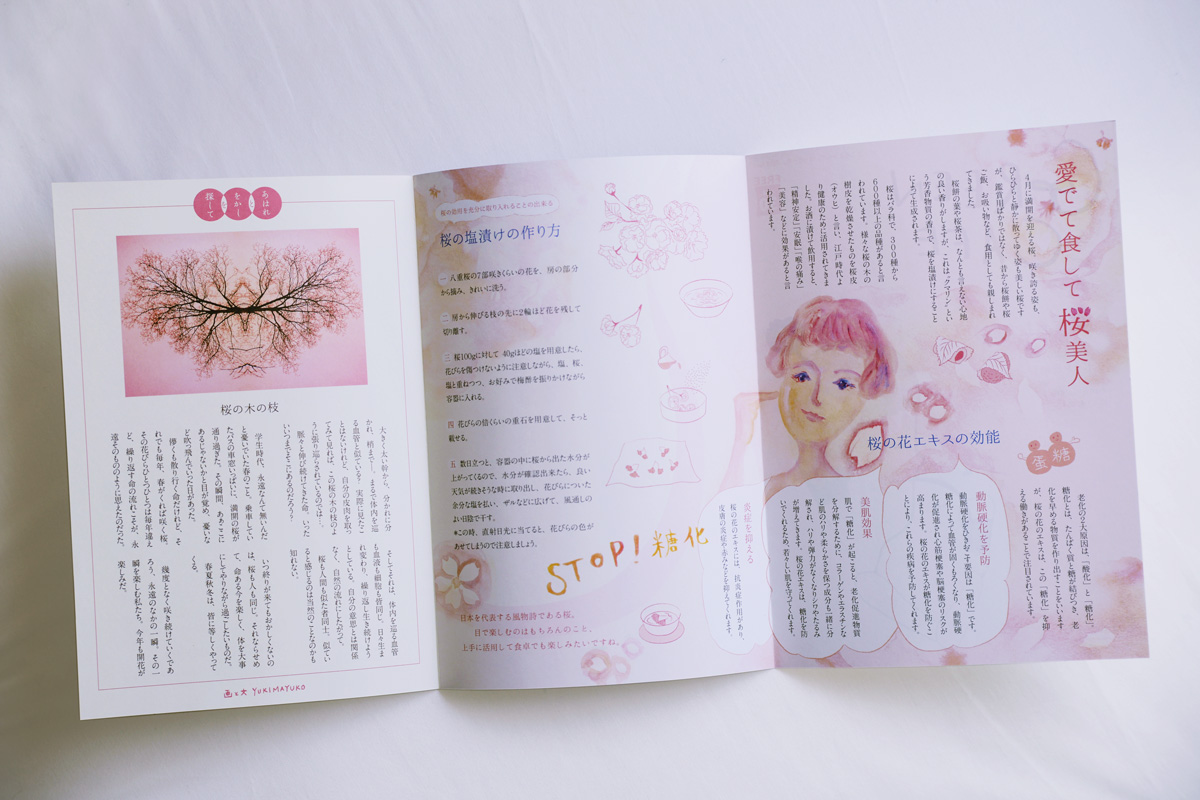 愛でて食して桜美人
4月に満開を迎える桜。咲き誇る姿も、
ひらひらと静かに散ってゆく姿も美しい桜です
が、鑑賞用ばかりではなく、昔から桜餅や桜
ご飯、お吸い物など、食用としても親しまれ
てきました。
桜餅の葉や桜茶は、なんとも言えない心地
の良い香りがしますが、これは「クマリン」とい
う芳香物質の香りで、桜を塩漬けにすること
によって生成されます。
桜はバラ科で、300種から
600種以上の品種があると言
われています。様々な桜の木の
樹皮を乾燥させたものを桜皮
(オウヒ)と言い、江戸時代よ
り健康のために活用されてきま
した。お酒に漬けて飲用すると、
「精神安定」「安眠」「喉の痛み」
「美容」などに効果があると言
われています。
桜の花エキスの効能
蛋 糖
老化の2大原因は、「酸化」と「糖化」。
糖化とは、たんぱく質と糖が結びつき、老
化を早める物質を作り出すことをいいます
が、桜の花のエキスは、この「糖化」を抑
える働きがあることで注目されています。
動脈硬化を予防
動脈硬化をひきおこす要因は「糖化」です。
糖化によって血管が固くもろくなり、動脈硬
化が促進され心筋梗塞や脳梗塞のリスクが
高まります。桜の花のエキスが糖化を防ぐこ
とにより、これらの疾病を予防してくれます。
美肌効果
肌で「糖化」が起こると、老化促進物質
を分解するために、コラーゲンやエラスチンな
ど肌のハリや柔らかさを保つ成分も一緒に分
解され、ハリや弾力がなくなりシワやたるみ
が増えてきます。桜の花エキスは、糖化を防
いでくれるため、若々しい肌を守ってくれます。
炎症を抑える
桜の花のエキスには、抗炎症作用があり、
皮膚の炎症や赤みなどを抑えてくれます。
桜の効用を充分に取り入れることの出来る
桜の塩漬けの作り方
一 八重桜の7部咲きくらいの花を、房の部分
から摘み、きれいに洗う。
二 房から伸びる枝の先に2輪ほど花を残して
切り離す。
三 桜100gに対して 40gほどの塩を用意したら、
花びらを傷つけないように注意しながら、塩、桜、
塩と重ねつつ、お好みで梅酢を振りかけながら
容器に入れる。
四 花びらの倍くらいの重石を用意して、そっと
載せる。
五 数日立つと、容器の中に桜から出た水分が
上がってくるので、水分が確認出来たら、良い
天気が続きそうな時に取り出し、花びらについた
余分な塩を払い、ザルなどに広げて、風通しの
よい日陰で干す。
※この時、直射日光に当てると、花びらの色が
あせてしまうので注意しましょう。
STOP! 糖化
日本を代表する風物詩である桜。
目で楽しむのはもちろんのこと、
上手に活用して食卓でも楽しみたいですね。
あはれ
をかし
探して
桜の木の枝
大きく太い幹から、分かれに分
かれ、梢まで―。まるで体内を巡
る血管と似ている? 実際に見たこ
とはないけれど、自分の皮肉を取っ
てみて見れば、この桜の木の枝のよ
うに張り巡らされているのでは―。
脈々と伸び続けてきた命。いった
いいつまでそこにあるのだろう?
学生時代、永遠なんて無いんだ
と憂いでいた春のこと、乗車してい
たバスの車窓いっぱいに、満開の桜が
通り過ぎた。その瞬間、あぁここに
あるじゃないかと目が覚め、憂いな
ど吹っ飛んでいった日があった。
儚くも散り行く命だけれど、そ
れでも毎年、春がくれば咲く、桜。
その花びらひとつひとつは毎年違え
ど、繰り返す命の流れこそが、永
遠そのもののように思えたのだった。
そしてそれは、体内を巡る血管
も血液も細胞も皆同じ。日々生ま
れ変わり繰り返し生き続けよう
としている。自分の意思とは関係
なく、自然の流れにしたがって。
桜も人間も似た者同士。似てい
ると感じるのは当然のことなのかも
知れない。
いつ終りが来てもおかしくないの
は、桜も人も同じ。それならせめ
て、命ある今を楽しく、体を大事
にしてやりながら過ごしたいものだ。
春夏秋冬は、皆に等しくやって
くる。
幾度となく咲き続けていくであ
ろう、永遠のなかの一瞬。その一
瞬を楽しむ私たち。今年も開花が
楽しみだ。
画と文 YUKIMAYUKO